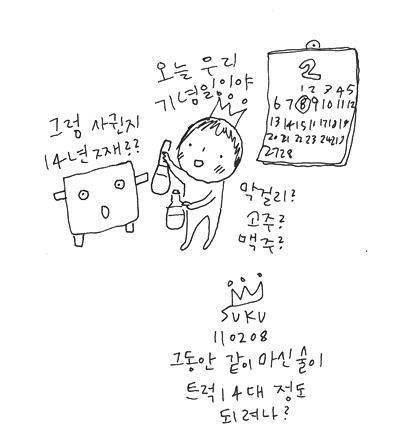 오늘 우리
기념일이야
그럼 사귄지
14년째??
2
1 2 3 4 5
6 7 8 9 10 11 12
13 14 15 16 17 18 19
20 21 22 23 24 25 26
27 28
막걸리?
소주?
맥주?
SUKU
110208
그동안 같이 마신 술이
트럭 14대 정도
되려나?